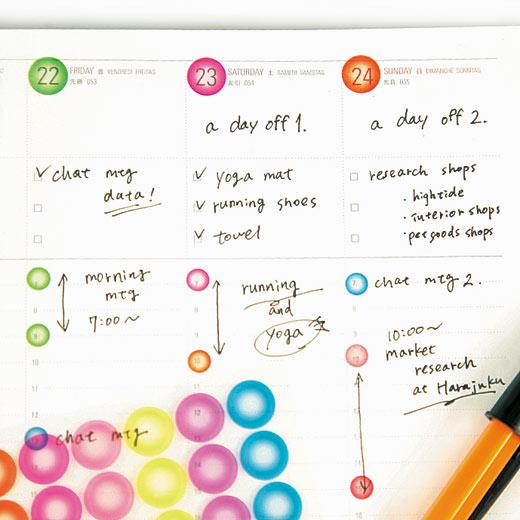 22 FRIDAY 金 VENDREDI FREITAG
先勝 053
chat mtg
data!
morning
mtg
7:00~
chat mtg
23 SATURDAY 土 SAMEDI SAMSTAG
友引 054
a day off 1.
yoga mat
running shoes
towel
running
and
yoga
24 SUNDAY 日 DIMANCHE SONNTAG
先負 055
a day off 2.
research shops
・hightide
・interior shops
・pet goods shops
chat mtg 2.
10:00~
market
research
at Harajuku